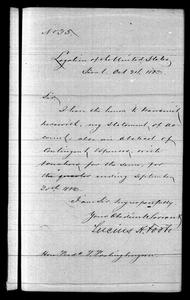 No 35.
Legation of the United States,
Seoul, Oct 2nd 1883
Sir
I have the honor to transmit
herewith, my Statement of Ac-
count, also an abstract of
Contingent Expenses, with
vouchers for the same, for
the quarter ending September
30th 1883.
I am Sir, very respectfully
Your Obedient Servant
Lucius H. Foote
Hon. Fredk T. Frelinghuysen